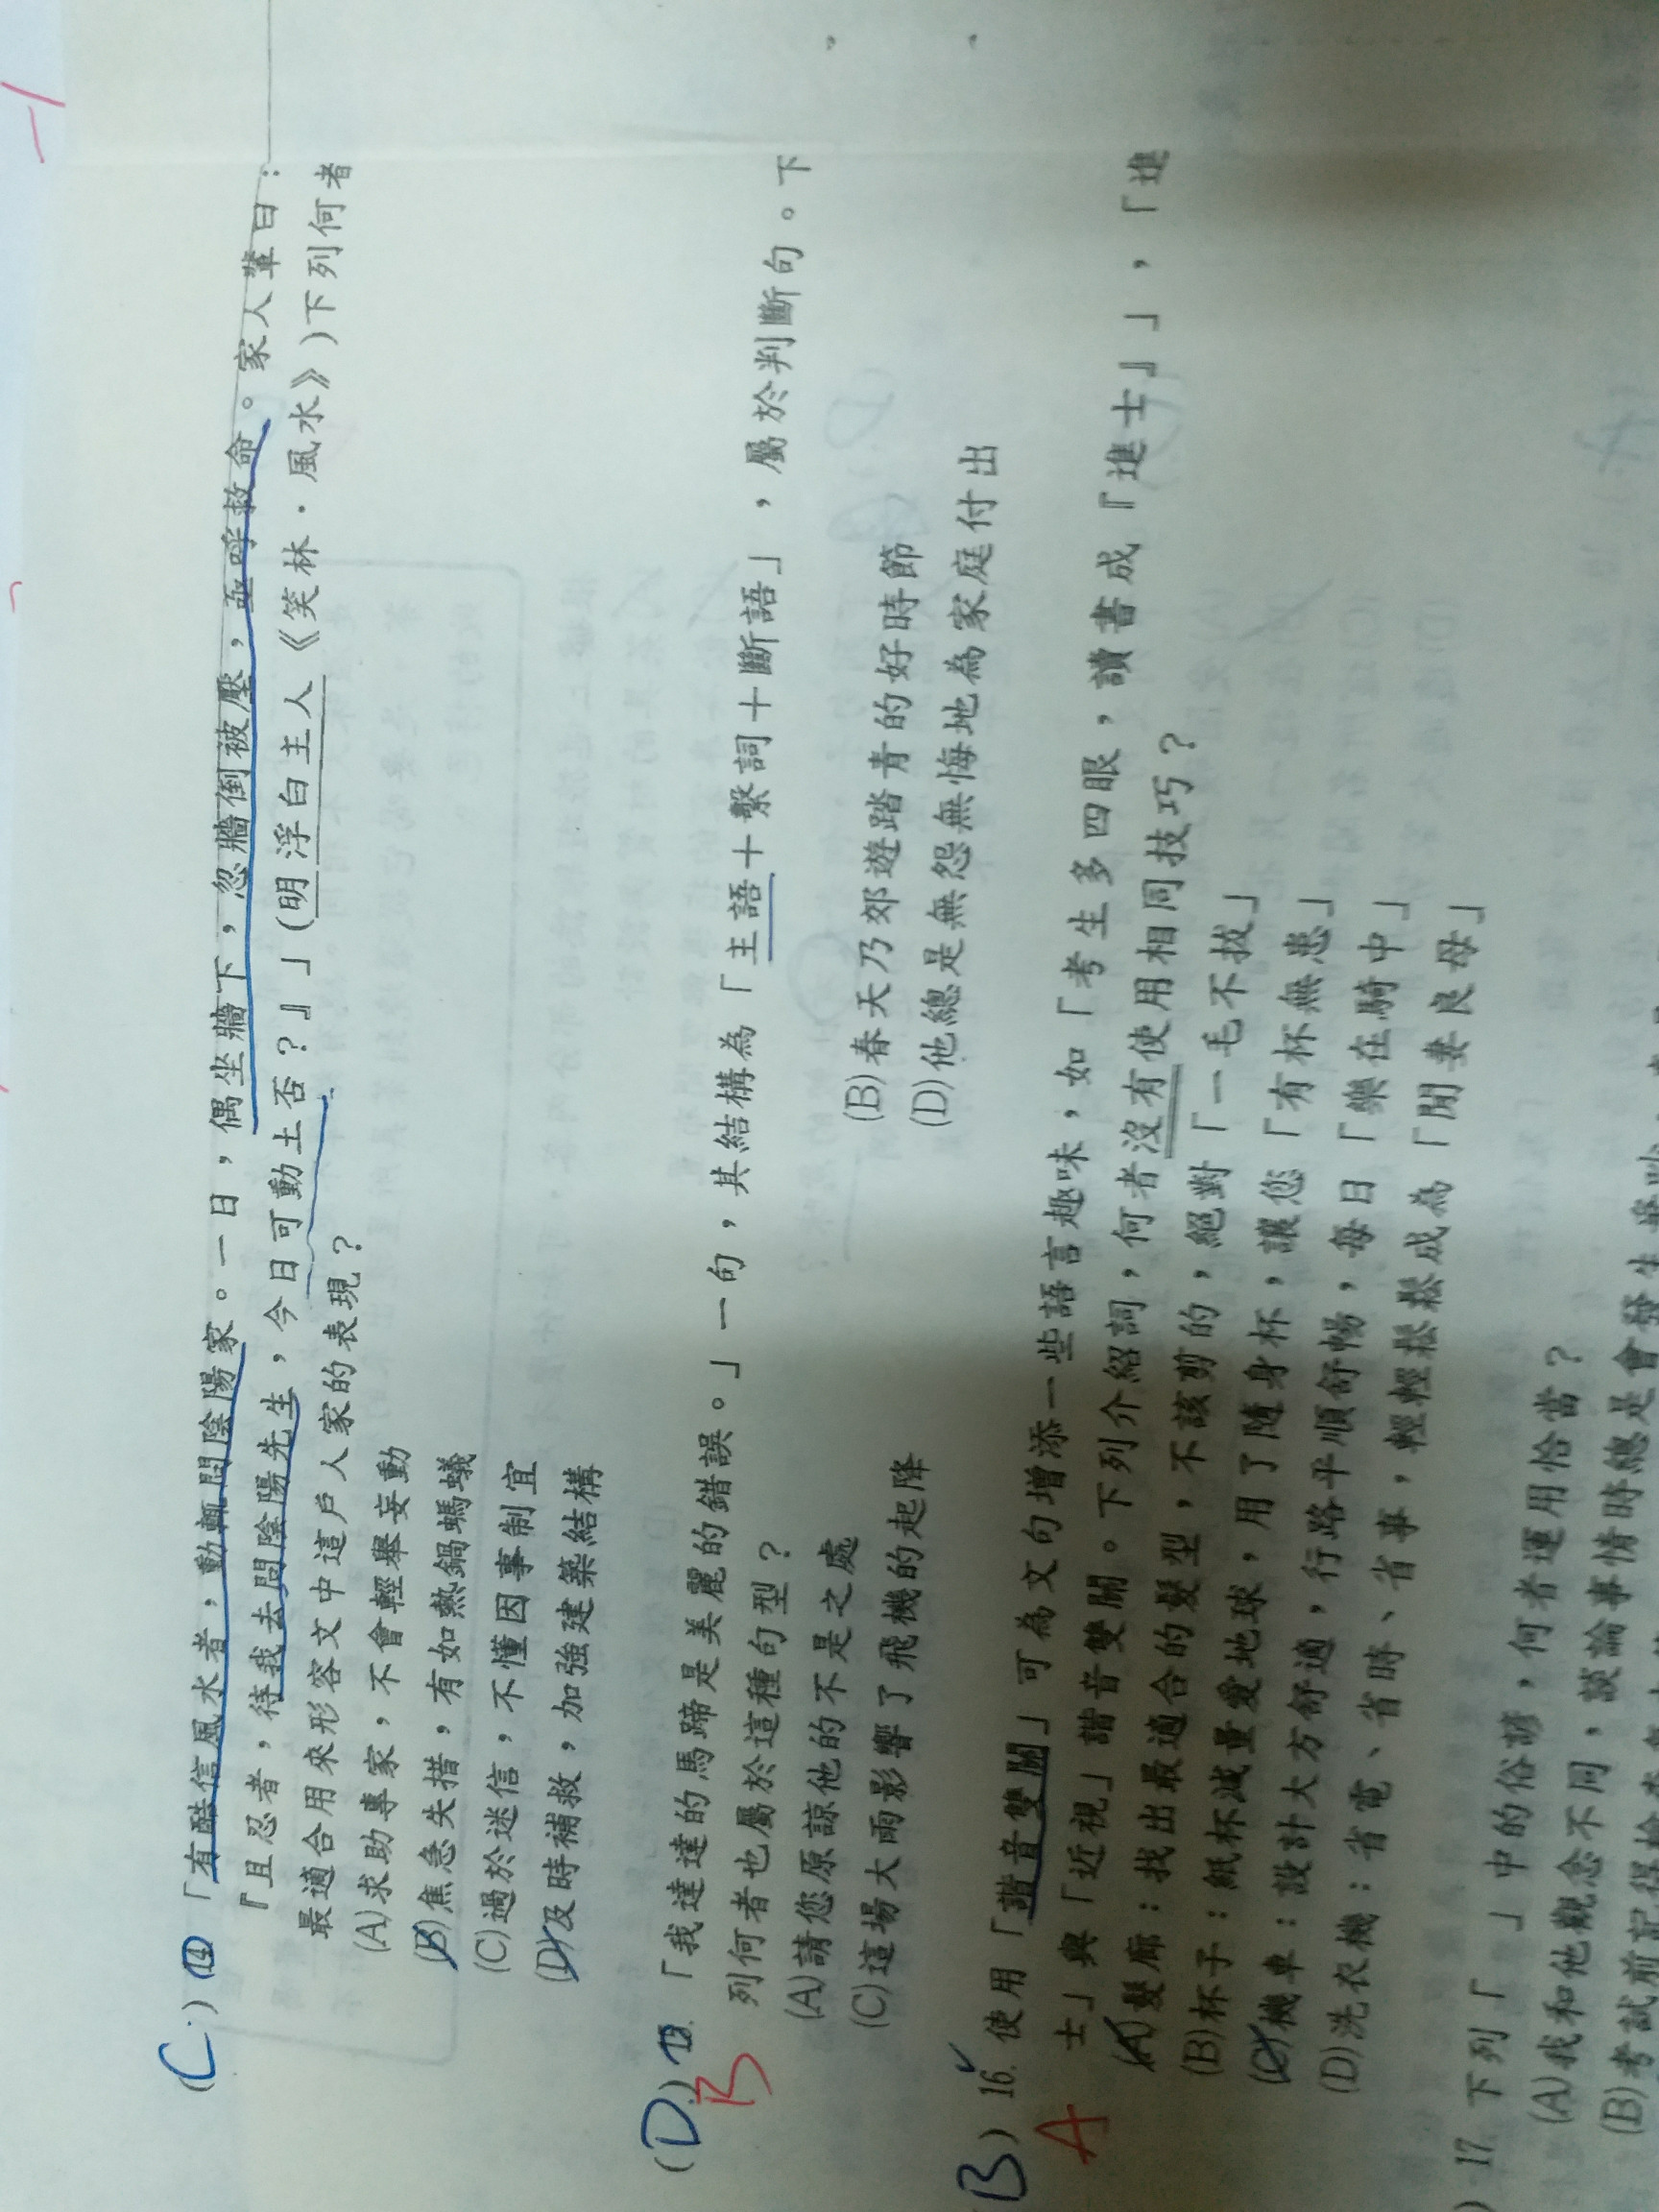 (C) 14.「有酷信風水者，動輒問陰陽家。一日，偶坐牆下，忽牆倒被壓，亟呼救命。家人輩曰：
『且忍者，待我去問陰陽先生，今日可動土否？』」(明 浮白主人《笑林．風水》)下列何者
最適合用來形容文中這戶人家的表現？
(A)求助專家，不會輕舉妄動
(B)焦急失措，有如熱鍋螞蟻
(C)過於迷信，不懂因事制宜
(D)及時補救，加強建築結構
(D) 15.「我達達的馬蹄是美麗的錯誤。」一句，其結構為「主語＋繫詞＋斷語」，屬於判斷句。下
B
列何者也屬於這種句型？
(A)請您原諒他的不是之處 (B)春天乃郊遊踏青的好時節
(C)這場大雨影響了飛機的起降 (D)他總是無怨無悔地為家庭付出
(B) 16.使用「諧音雙關」可為文句增添一些語言趣味，如「考生多四眼，讀書成『進士』」，「進
A
士」與「近視」諧音雙關。下列介紹詞，何者沒有使用相同技巧？
(A)髮廊：找出最適合的髮型，不該剪的，絕對「一毛不拔」
(B)杯子：紙杯減量愛地球，用了隨身杯，讓您「有杯無患」
(C)機車：設計大方舒適，行路平順舒暢，每日「樂在騎中」
(D)洗衣機：省電、省時、省事，輕輕鬆鬆成為「閒妻良母」
) 17.下列「　」中的俗諺，何者運用恰當？
(A)我和他觀念不同，談論事情時總是會發生
(B)考試前記得檢查